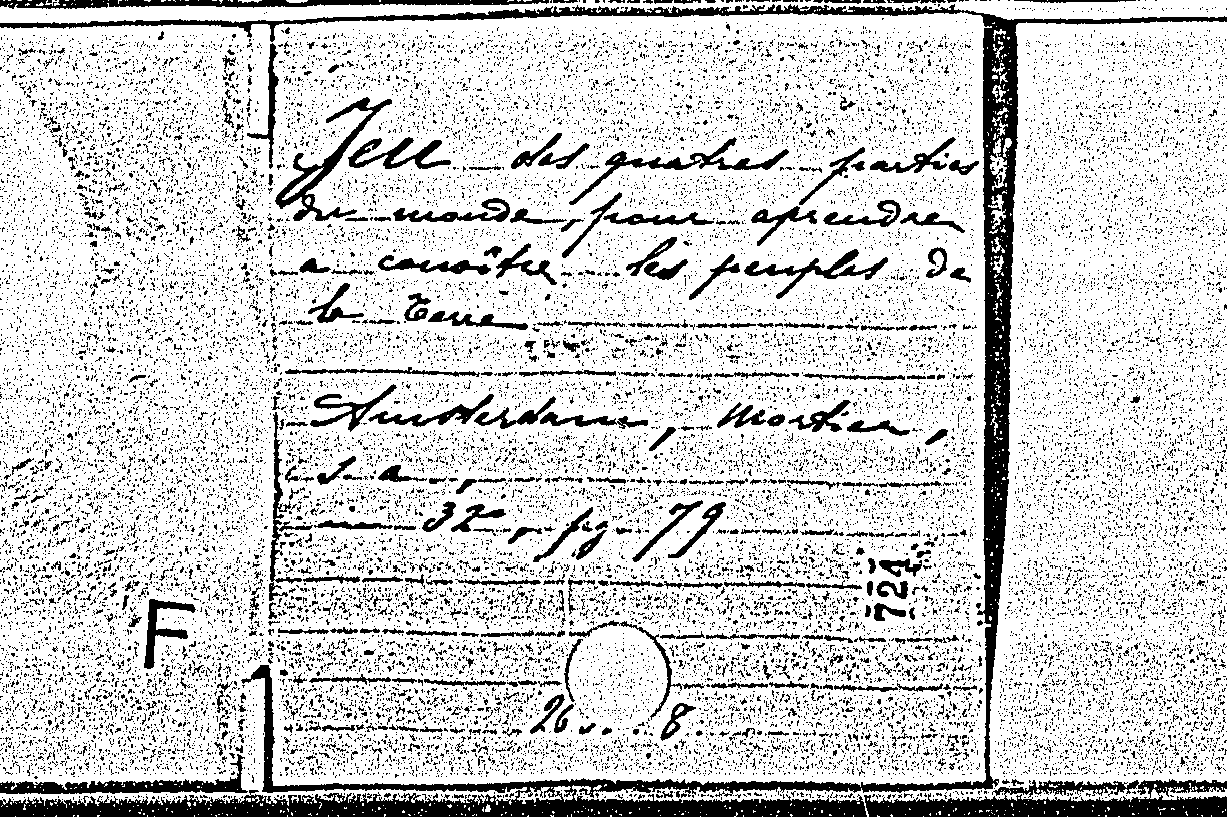 Jeu des quatres parties
du monde, pour aprendre
a conoître les peuples de
la Terre
Amsterdam, Mortier,
s. a.,
in 32º, pg. 79
724
F
26 . . 8.